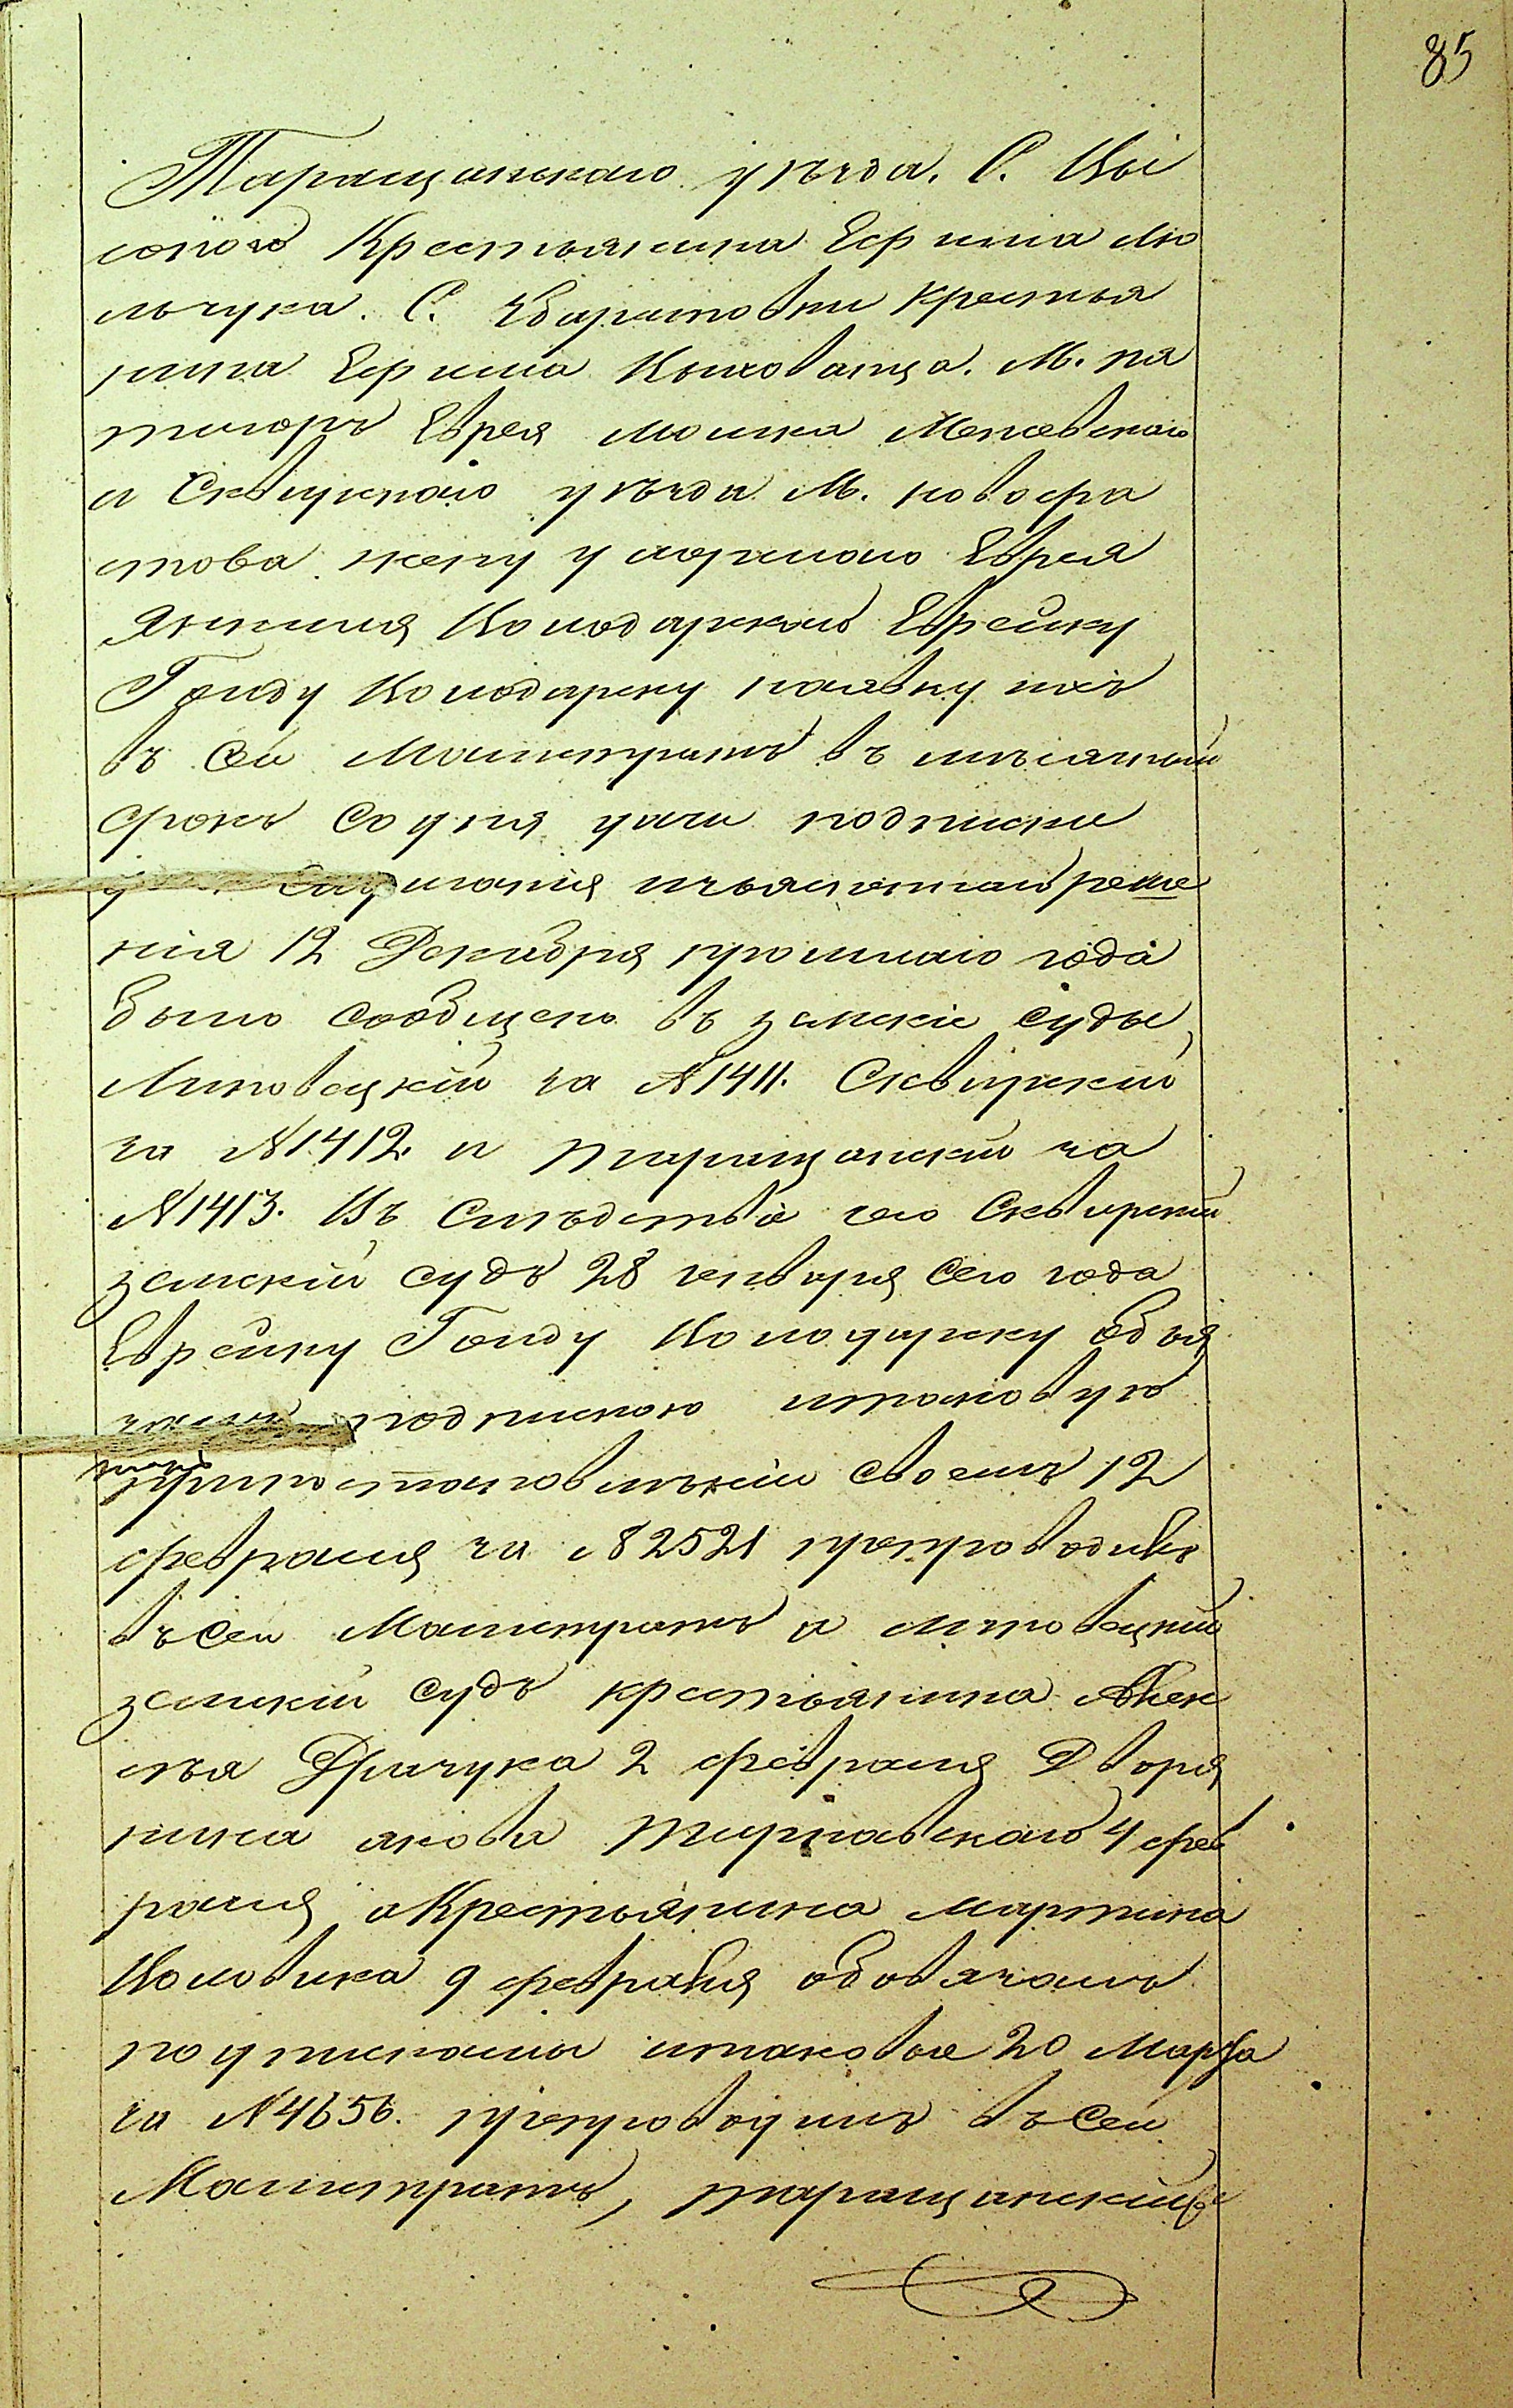 85
Таращанскаго уѣзда. С. Кы
сопого Крестьянина Ефима Лю
льчука. С. Збаржовки Крестья
нина Ефима Кыховатца. М. пя
тигоръ Еврея Мошка Межевскаго
и Сквирскаго уѣзда М. новофа
стова жену умершаго Еврея
Янкеля Колодарскаго Еврейку
Гольду Колодарску на явку ихъ
въ Сей Магистратъ въ мѣсячный
срокъ Со дня дачи подписки
для Слушанія изъясненнаго реше
нія 12 Декабря прошлаго года
было сообщено въ земскіе суды,
Липовецкій за №1411. Сквирскій
за №1412. и таращанскій за
№1413. Въ Слѣдствіе чего Сквирскій
земскій судъ 28 генваря Сего года
Еврейку Гольду Колодарску обвя
завъ подпискою итаковую
при постановленіи своемъ 12
февраля за №2521 препроводивъ
въ Сей Магистратъ а липовецкій
земскій судъ крестьянина Алек
сѣя Дричука 2 февраля Дворя
нина якова Тирковскаго 4 фев
раля а Крестьянина мартина
Коловика 9 февраля обовязалъ
подписками итаковые 20 Марта
за №4656. препроводилъ въ Сей
Магистратъ, таращанскій